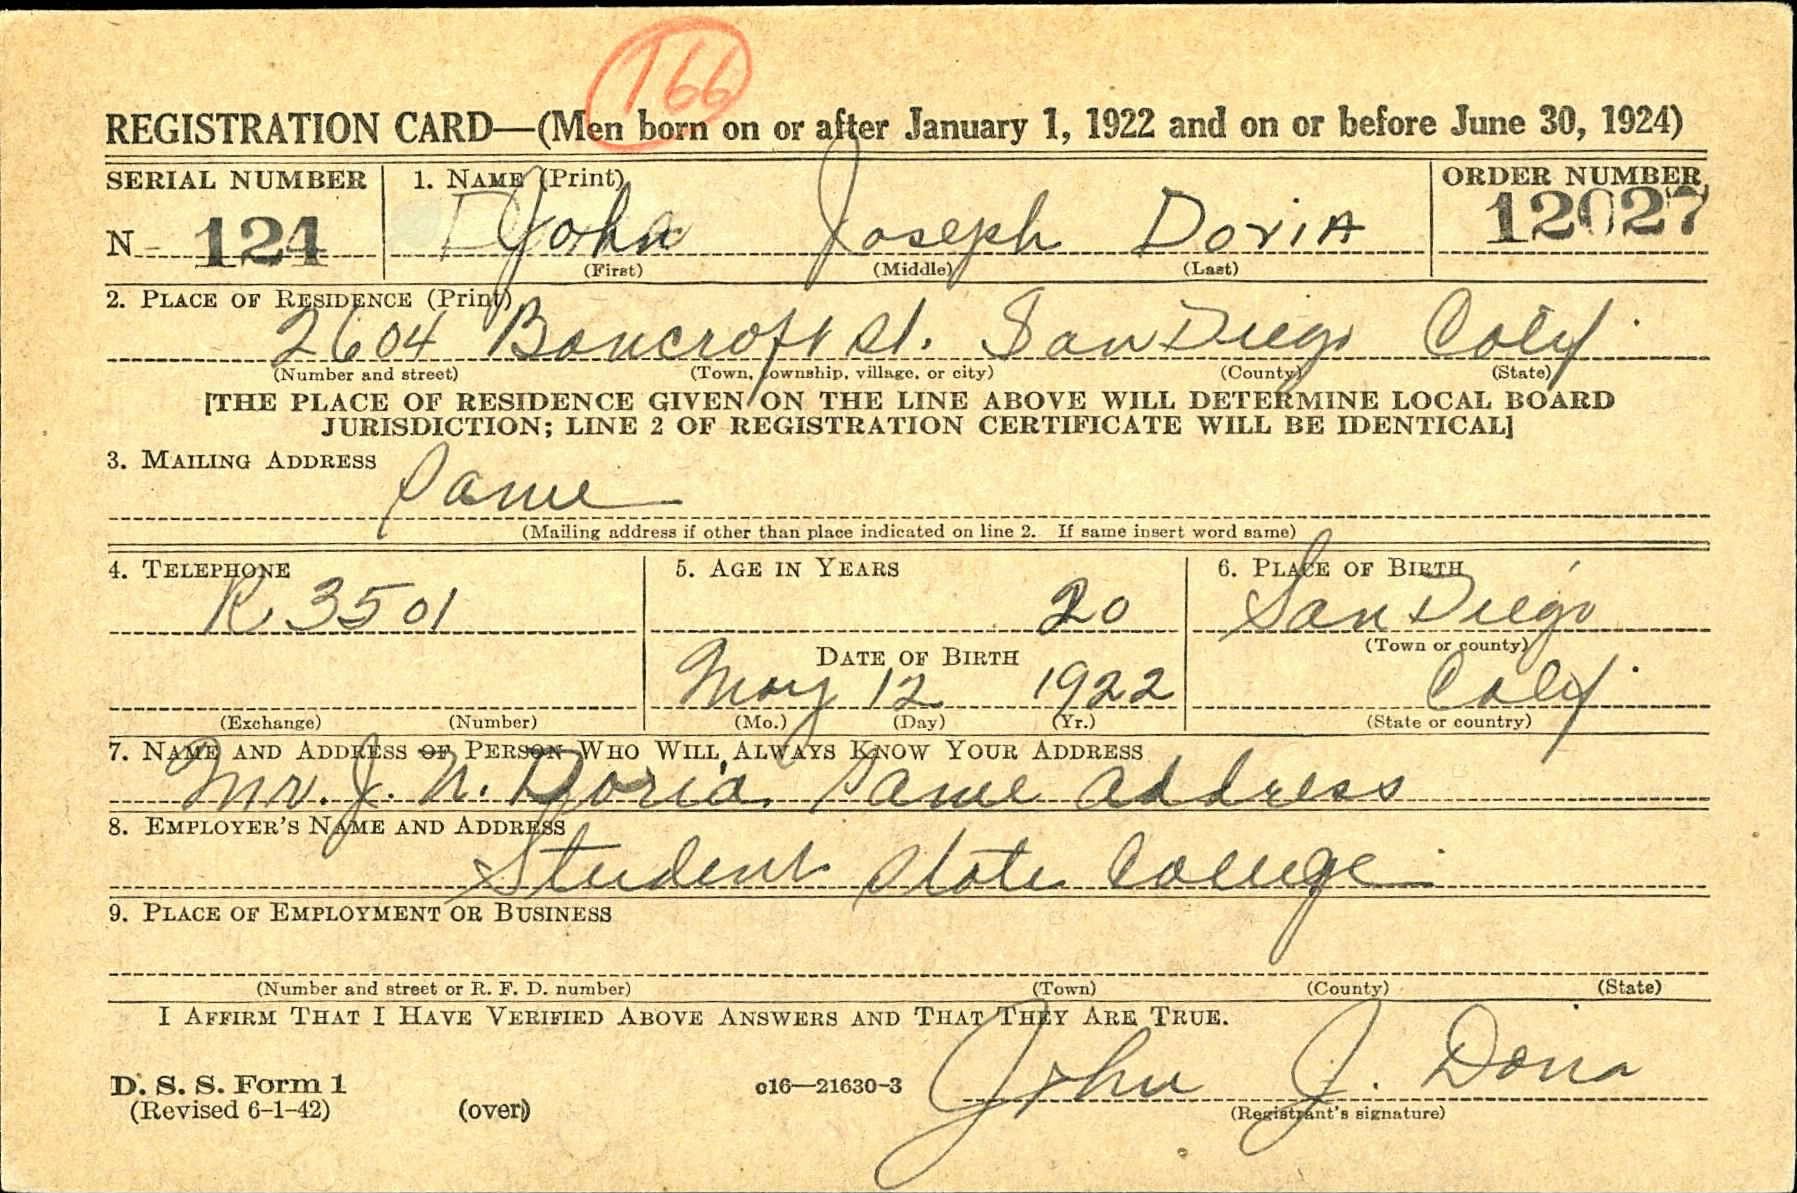 166
REGISTRATION CARD—(Men born on or after January 1, 1922 and on or before June 30, 1924)
SERIAL NUMBER 1. NAME (Print) ORDER NUMBER
N 124 John Joseph Doria 12027
(First) (Middle) (Last)
2. PLACE OF RESIDENCE (Print)
2604 Bancroft St. San Diego Calif.
(Number and street) (Town, township, village, or city) (County) (State)
[THE PLACE OF RESIDENCE GIVEN ON THE LINE ABOVE WILL DETERMINE LOCAL BOARD
JURISDICTION; LINE 2 OF REGISTRATION CERTIFICATE WILL BE IDENTICAL]
3. MAILING ADDRESS
Same
(Mailing address if other than place indicated on line 2. If same insert word same)
4. TELEPHONE 5. AGE IN YEARS 6. PLACE OF BIRTH
R 3501 20 San Diego
(Town or county)
DATE OF BIRTH
May 12 1922 Calif.
(Exchange) (Number) (Mo.) (Day) (Yr.) (State or country)
7. NAME AND ADDRESS OF PERSON WHO WILL ALWAYS KNOW YOUR ADDRESS
Mr. J. N. Doria, same address
8. EMPLOYER'S NAME AND ADDRESS
Student State College
9. PLACE OF EMPLOYMENT OR BUSINESS
(Number and street or R. F. D. number) (Town) (County) (State)
I AFFIRM THAT I HAVE VERIFIED ABOVE ANSWERS AND THAT THEY ARE TRUE.
D. S. S. Form 1 c16—21630-3 John J. Doria
(Revised 6-1-42) (over) (Registrant's signature)